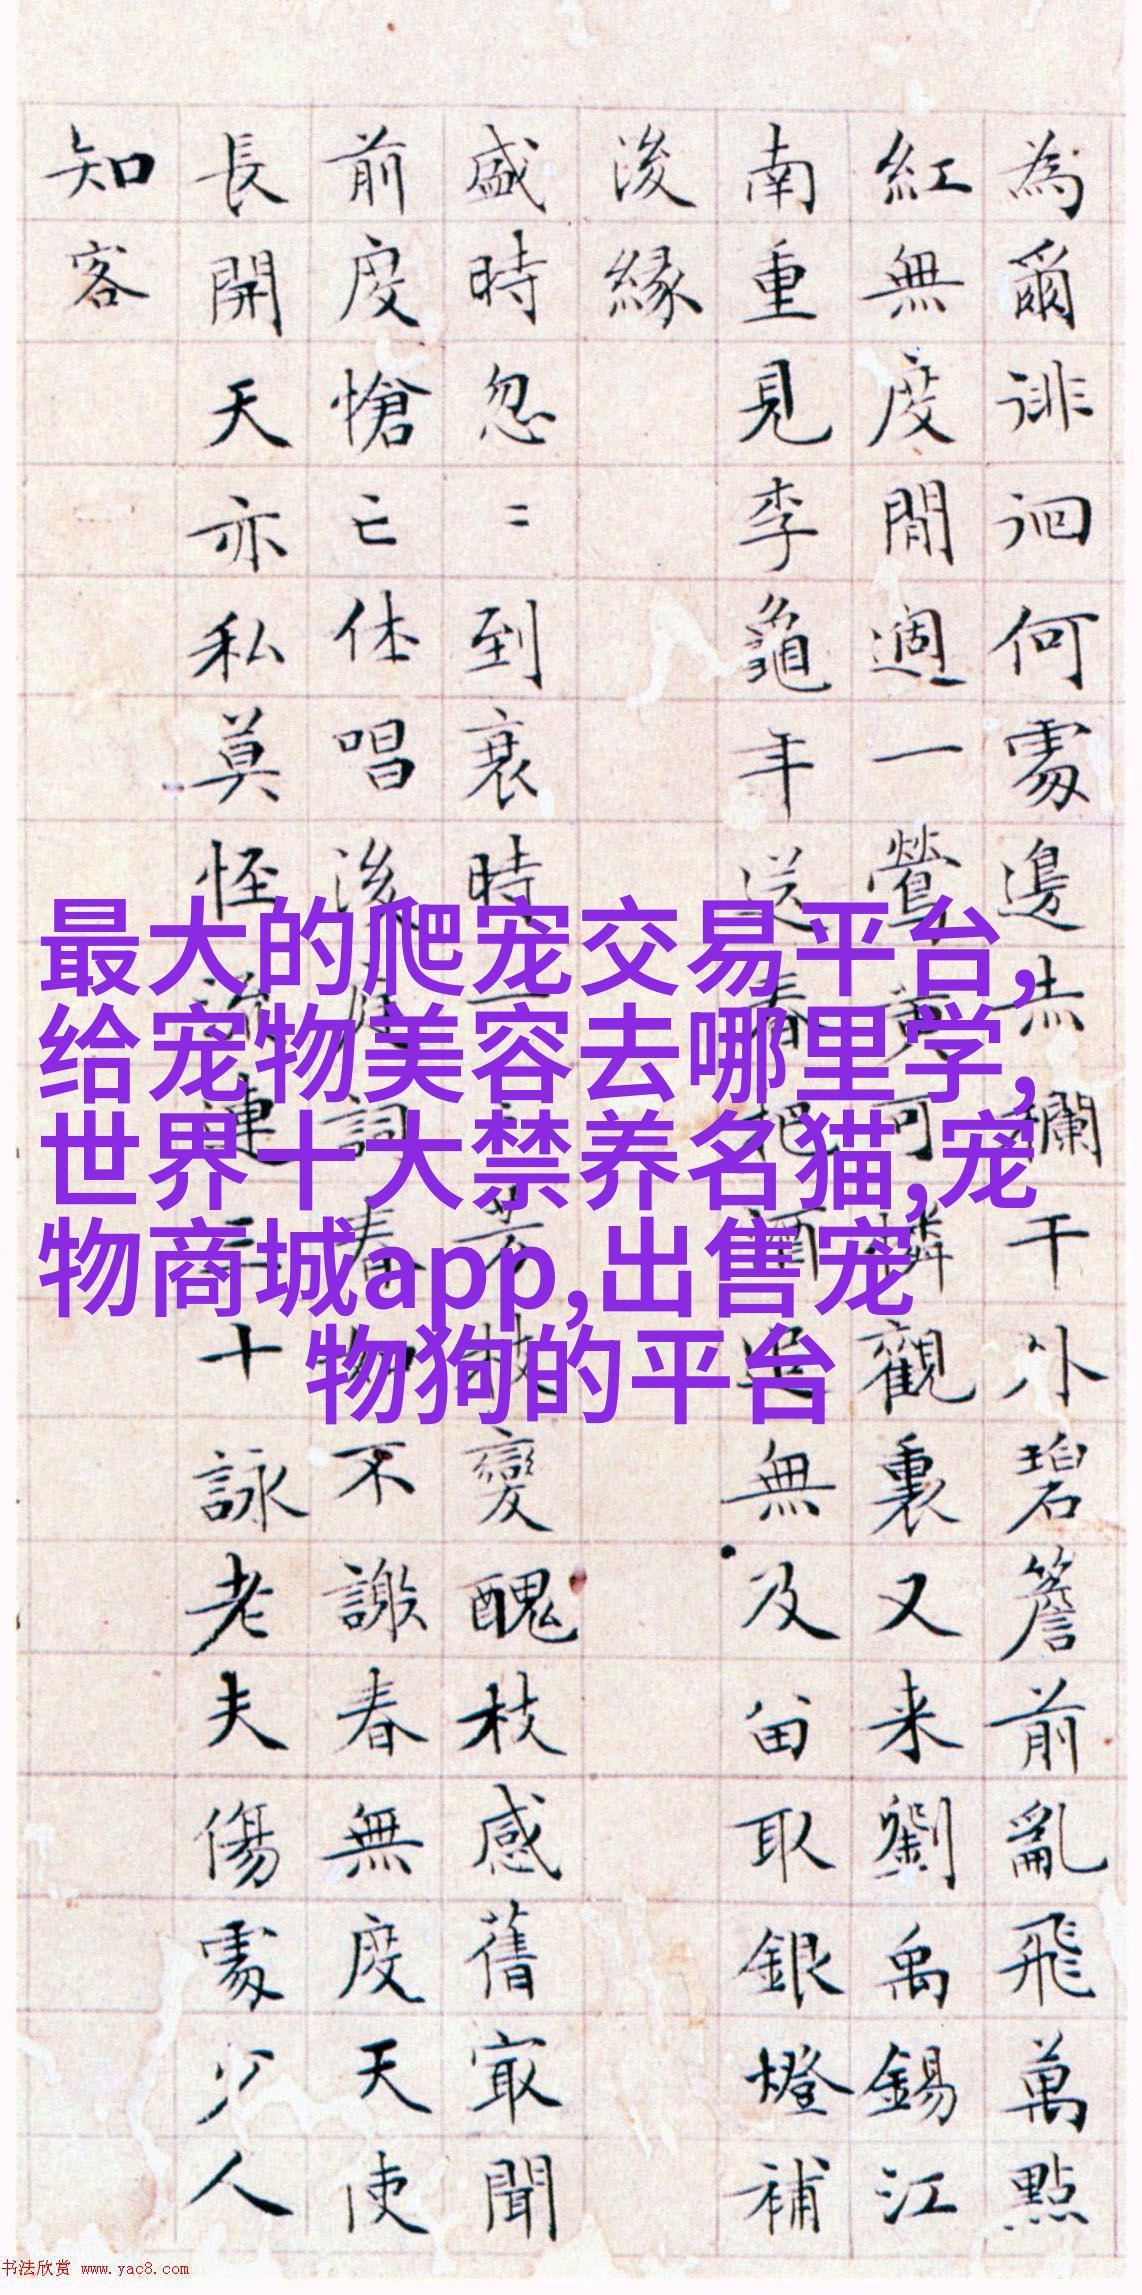 為爾徘徊何處邊赤欄干外碧簷前亂飛萬點
紅無度閒過一鶯黃可憐觀裏又来劉禹錫江
南重見李龜年送春把酒追無及留取銀燈補
後緣
盛時忽〻到衰時一一芳枝變醜枝感舊
前度愴亡休唱後庭詞春如不謝春無度天使
長開天亦私莫怪流連三十詠老夫傷處少人
知客
最大的爬宠交易平台,
给宠物美容去哪里学,
世界十大禁养名猫,宠
物商城app,出售宠
物狗的平台
书法欣赏 www.yac8.com